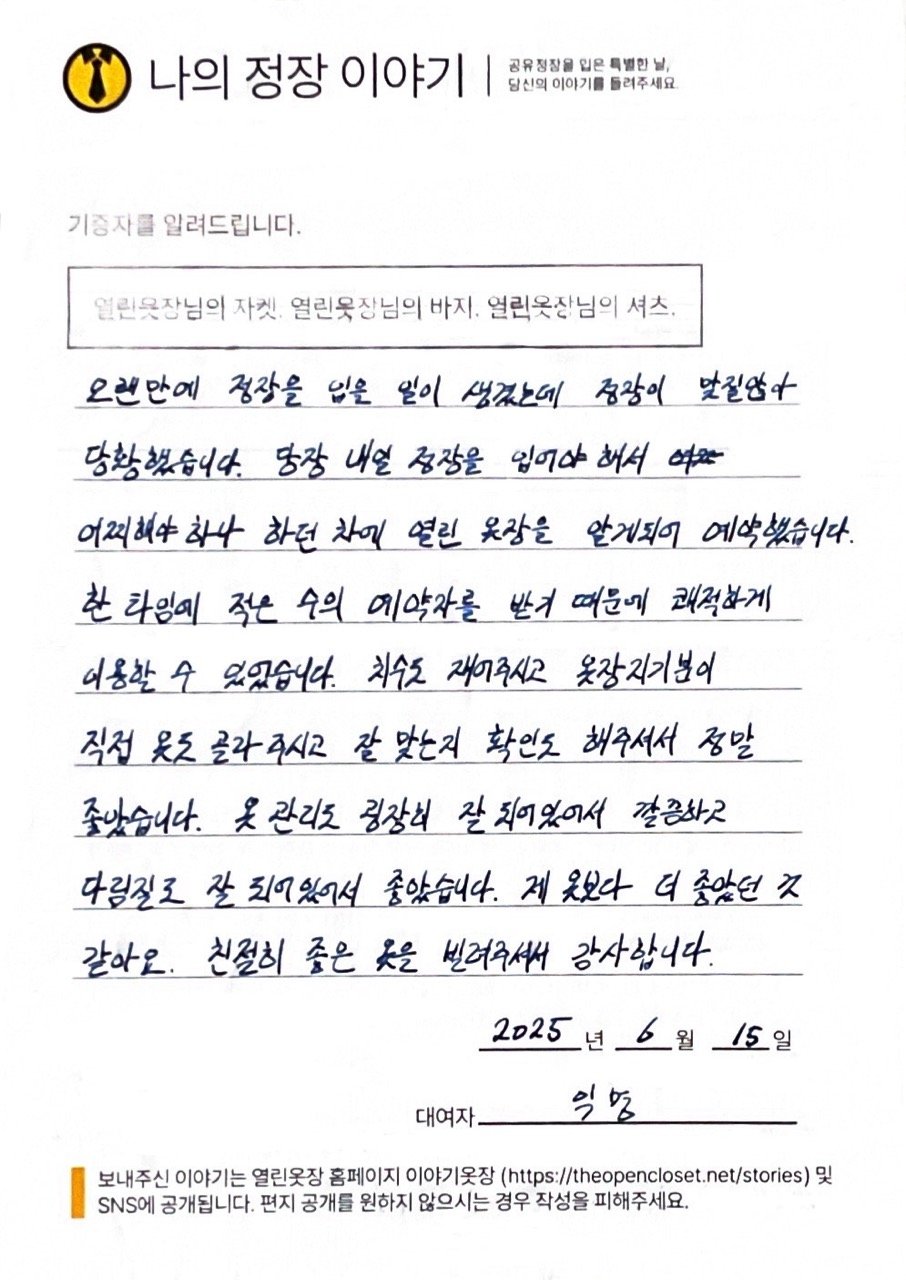 나의 정장 이야기
공유정장을 입은 특별한 날,
당신의 이야기를 들려주세요.
기증자를 알려드립니다.
열린옷장님의 자켓. 열린옷장님의 바지. 열린옷장님의 셔츠.
오랜만에 정장을 입을 일이 생겼는데 정장이 맞질않아
당황했습니다. 당장 내일 정장을 입어야 해서
어찌해야 하나 하던 차에 열린 옷장을 알게되어 예약했습니다.
한 타임에 적은 수의 예약자를 받기 때문에 쾌적하게
이용할 수 있었습니다. 치수도 재어주시고 옷장지기분이
직접 옷도 골라 주시고 잘 맞는지 확인도 해주셔서 정말
좋았습니다. 옷 관리도 굉장히 잘 되어있어서 깔끔하고
다림질도 잘 되어있어서 좋았습니다. 제 옷보다 더 좋았던 것
같아요. 친절히 좋은 옷을 빌려주셔서 감사합니다.
2025년 6월 15일
대여자 익명
보내주신 이야기는 열린옷장 홈페이지 이야기옷장 (https://theopencloset.net/stories) 및
SNS에 공개됩니다. 편지 공개를 원하지 않으시는 경우 작성을 피해주세요.